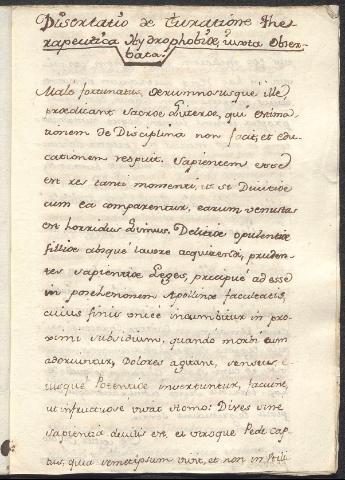 Disertatio de Curatione The-
rapeutica Hydrophobiæ, iuxta Obser-
bata.
Male fortunatus, derumnosusquè ille
prædicant Sacræ Literæ, qui extima-
tionem de Disciplina non facit, et edu-
cationem respuit. Sapientem esse
est res tanti momenti, ut si Divitiæ
cum ea comparentur, earum venustas
est horridus Limus. Delitiæ opulentiæ
filliæ absquè labore acquirendi, pruden-
tes sapientiæ Leges, præcipuè ad esse
in Apolinæ facultatis,
cuius finis unicè incumbitur in pro-
ximi subsidium, quando morbi eum
adoriuntur, Dolores agitant, sensus
eiusquè Potentiæ invertuntur, faciunt,
ut infructuose vivat Homo: Dives sine
sapientia debilis est, et utroque Pede cap-
tus, quia semetipsum vivit, et non in